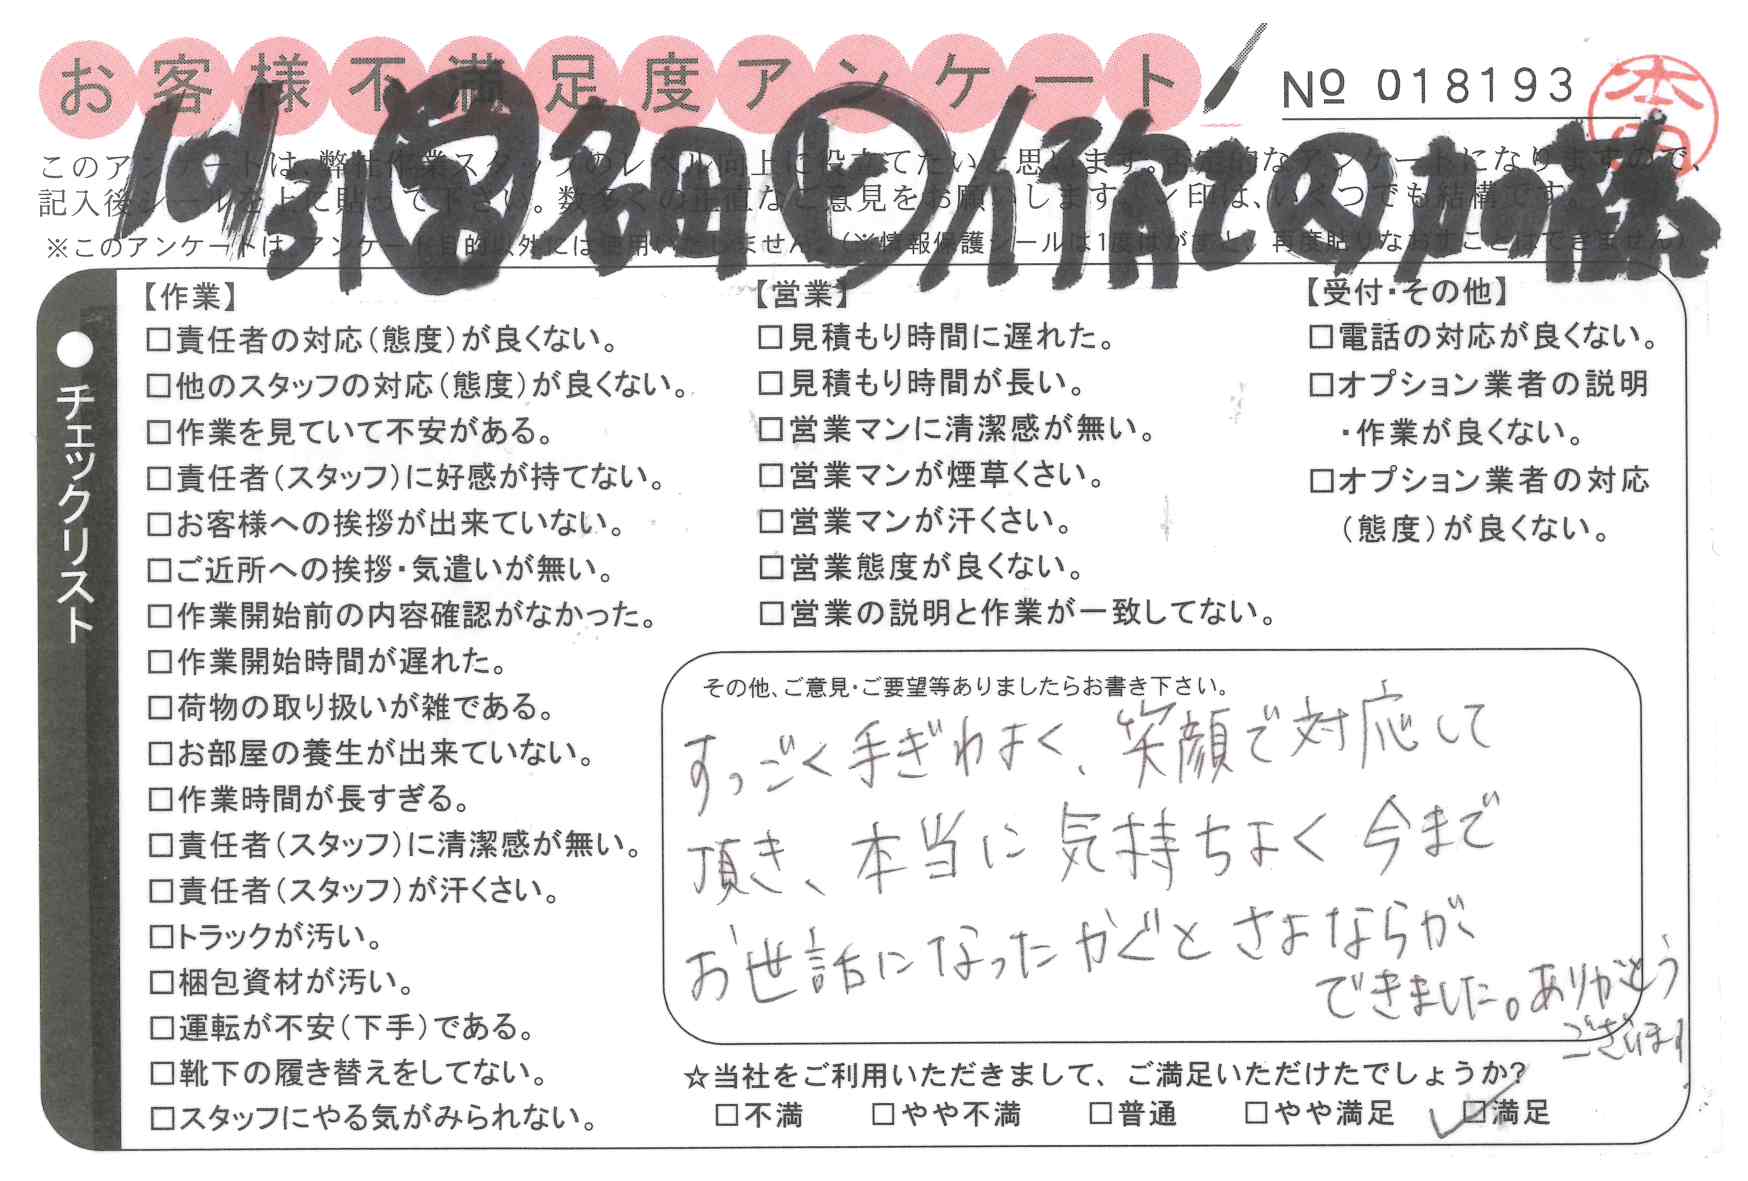 お客様不満足度アンケート
№ 018193
このアンケートは、弊社作業スタッフのレベル向上に役立てたいと思います。否定的なアンケートになりますので、
記入後シールを上に貼って下さい。数多くの正直なご意見をお願いします。レ印は、いくつでも結構です。
※このアンケートは、アンケート目的以外には使用いたしません。(※情報保護シールは1度はがすと、再度貼りなおすことはできません)
●チェックリスト
【作業】
□責任者の対応(態度)が良くない。
□他のスタッフの対応(態度)が良くない。
□作業を見ていて不安がある。
□責任者(スタッフ)に好感が持てない。
□お客様への挨拶が出来ていない。
□ご近所への挨拶・気遣いが無い。
□作業開始前の内容確認がなかった。
□作業開始時間が遅れた。
□荷物の取り扱いが雑である。
□お部屋の養生が出来ていない。
□作業時間が長すぎる。
□責任者(スタッフ)に清潔感が無い。
□責任者(スタッフ)が汗くさい。
□トラックが汚い。
□梱包資材が汚い。
□運転が不安(下手)である。
□靴下の履き替えをしてない。
□スタッフにやる気がみられない。
【営業】
□見積もり時間に遅れた。
□見積もり時間が長い。
□営業マンに清潔感が無い。
□営業マンが煙草くさい。
□営業マンが汗くさい。
□営業態度が良くない。
□営業の説明と作業が一致してない。
【受付・その他】
□電話の対応が良くない。
□オプション業者の説明
・作業が良くない。
□オプション業者の対応
(態度)が良くない。
その他、ご意見・ご要望等ありましたらお書き下さい。
すっごく手ぎわよく、笑顔で対応して
頂き、本当に気持ちよく今まで
お世話になったかぐとさよならが、
できました。ありがとう
ございます
☆当社をご利用いただきまして、ご満足いただけたでしょうか?
□不満 □やや不満 □普通 □やや満足 ☑満足